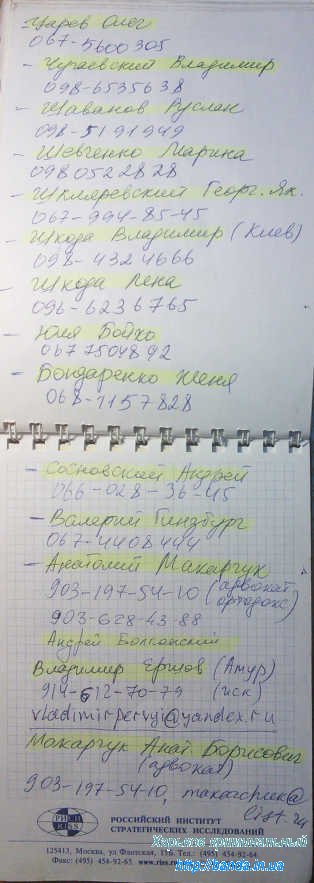 Царев Олег
067-5600305
- Чугаевский Владимир
098-6535638
- Шаванов Руслан
098-5191949
- Шевченко Марина
0980522828
- Шкляревский Георг. Як.
067-994-85-45
- Шкода Владимир (Киев)
098-4324666
- Шкода Лена
096-6236765
- Юля Бойко
0677504892
- Бондаренко Женя
068-1157828
- Сосновский Андрей
066-028-36-45
- Валерий Гинзбург
067-4408444
- Анатолий Макарчук
903-197-54-10 (адвокат, ортодокс)
903-628-43-88
Андрей
Владимир Ершов (Амур)
914-612-70-79 (иск)
vladimirpervyi@yandex.ru
Макарчук Анат. Борисович
(адвокат)
903-197-54-10,
list.ru
РИСИ
RISS
РОССИЙСКИЙ ИНСТИТУТ
СТРАТЕГИЧЕСКИХ ИССЛЕДОВАНИЙ
125413, Москва, ул Флотская, 15Б. Тел.: (495) 454-92-64
Факс: (495) 454-92-65 www.riss.ru
Харьков криминальный